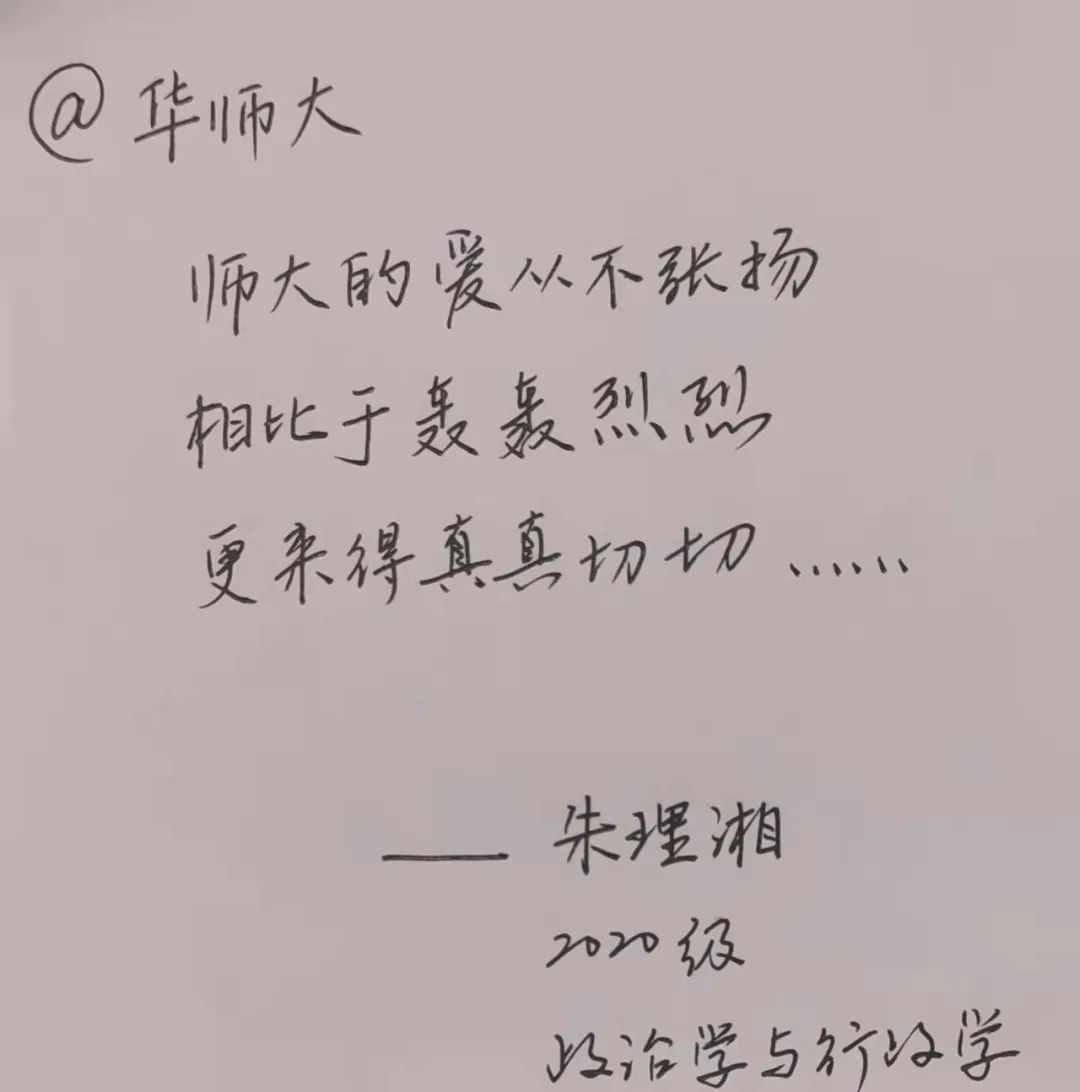 @华师大
师大的爱从不张扬
相比于轰轰烈烈
更来得真真切切……
—— 朱理湘
2020级
政治学与行政学